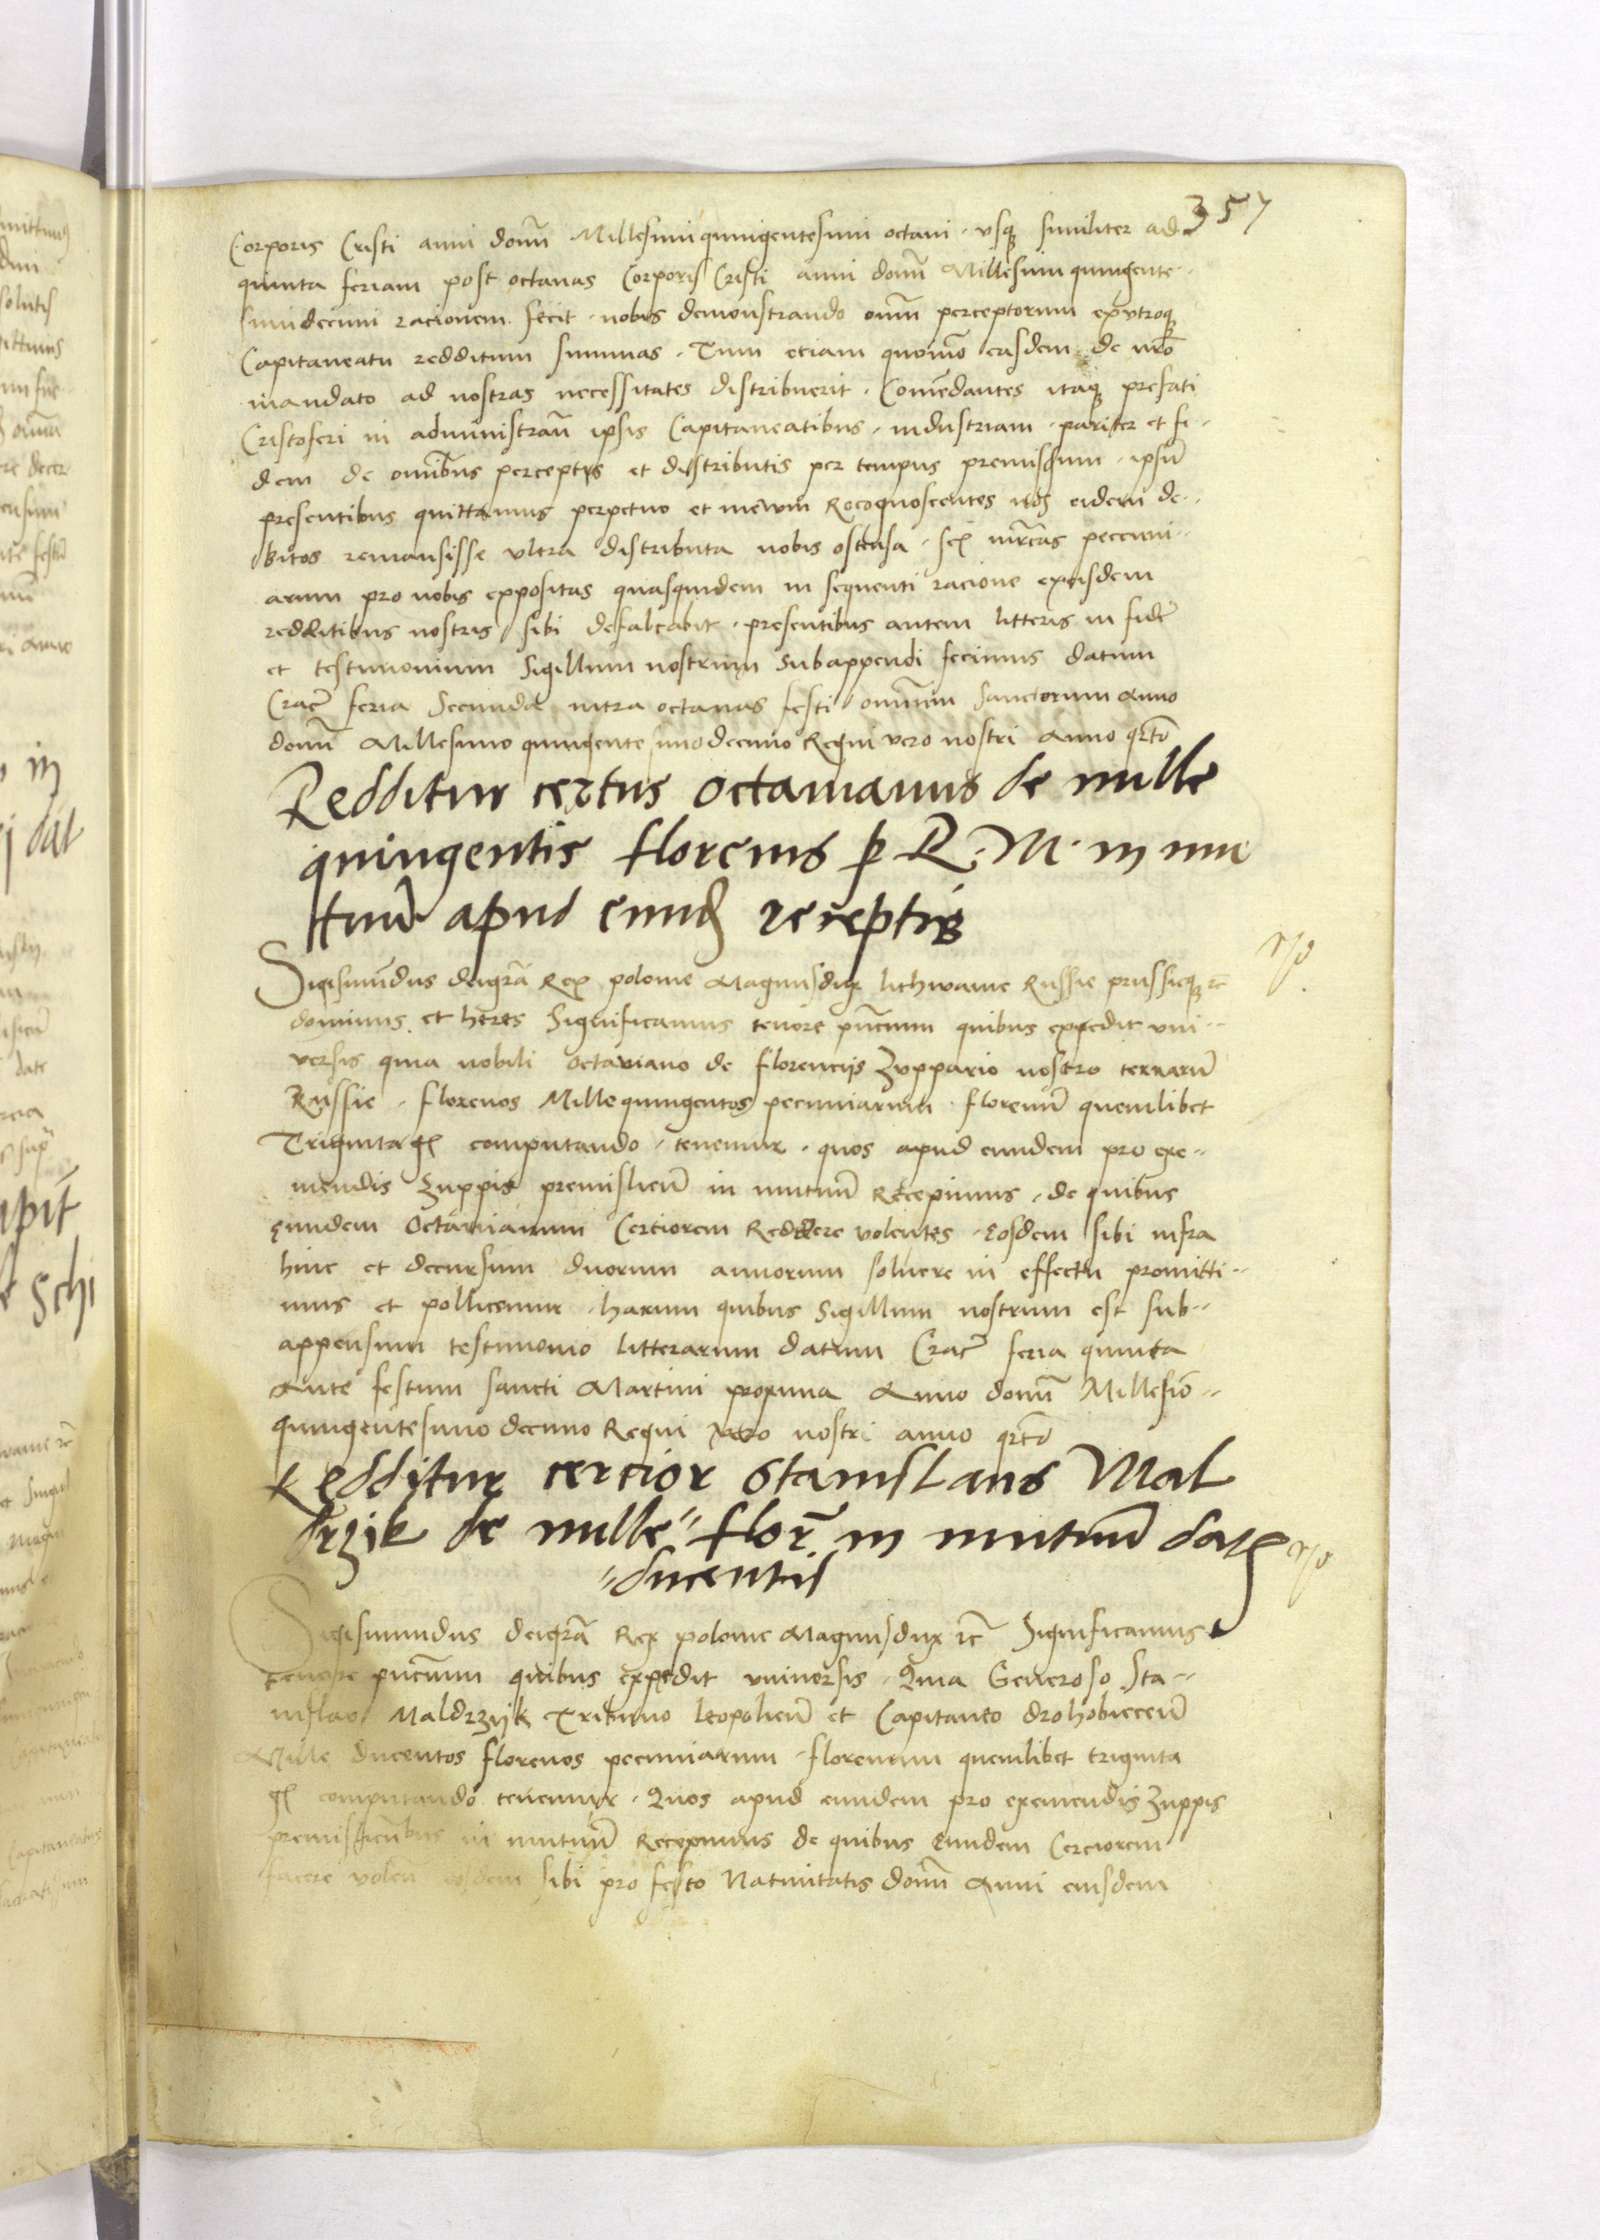 357
Corporis Cristi anni domī Millesimi quingentesimi octaui · vsq₃ similiter ad
quinta feriam post octauas Corporis Cristi anni domī Millesimi quingente-
simi decimi racionem fecit · nobis demonstrando omnī perceptorum ex vtroq₃
Capitaneatu redditum summas · Tum etiam quomō easdem de nrō
mandato ad nostras necessitates distribuerit · Comēdantes itaq₃ prefati
Cristoferi in administranī ipsis Capitaneatibus · industriam · pariter et fi-
dem de omībus perceptis et distributis per tempus premissum · ipsū
presentibus quittamus perpetuo et in ewm Recognoscentes nos eidem de-
bitos remansisse vltra distributa nobis ostensa · sex mrcas peccuni-
arum pro nobis expositas quasquidem in sequenti racione ex eisdem
redditibus nostris sibi defalcabit · presentibus autem litteris in fidē
et testimonium Sigillum nostrum subappendi fecimus datum
Crac̄ feria Secunda intra octauas festi omnium sanctorum Anno
domī Millesimo quingentesimo decimo Regni vero nostri Anno qrtō
Redditur certus octauianus de mille
quingentis florenis p R · M · in mu
tuū apud eund receptis
Sigismūdus dei grā Rex polonie Magnus dux lithwanie Russie prussieq₃ rc̄
dominus et heres Significamus tenore pn̄cium quibus expedit vni-
versis quia nobili octaviano de florencijs Zuppario nostro terrarū
Russie · florenos Mille quingentos pecuniarum · florenū quemlibet
Triginta g computando · tenemur · quos apud eundem pro exe-
mendis Zuppis premislien̄ in mutuū recepimus · de quibus
eundem Octauianum Cerciorem Reddere volentes · Eosdem sibi infra
hinc et decursum duorum annorum soluere in effectu promitti-
mus et pollicemur · harum quibus Sigillum nostrum est sub-
appensum testimonio litterarum datum Crac̄ feria quinta
Ante festum sancti Martini proxima Anno domī Millesiō
quingentesimo decimo Regni vero nostri anno qrtō
Redditur cercior Stanislaus Mal
drzik de mille flor̄ in mutuū dat
ducentis
Sigismundus dei grā Rex polonie Magnus dux rc̄ Significamus
tenore pn̄cium quibus expedit vniversis · Quia Generoso Sta-
nislao Maldrzijk Tribuno leopolien̄ et Capitaneo drohobiecen̄
Mille ducentos florenos pecuniarum · florenum quemlibet triginta
g computando tenemur · Quos apud eundem pro exemendis Zuppis
premislien̄bus in mutuū Recepimus de quibus Eundem Cerciorem
facere volen eosdem sibi pro festo Natiuitatis domī Anni eiusdem